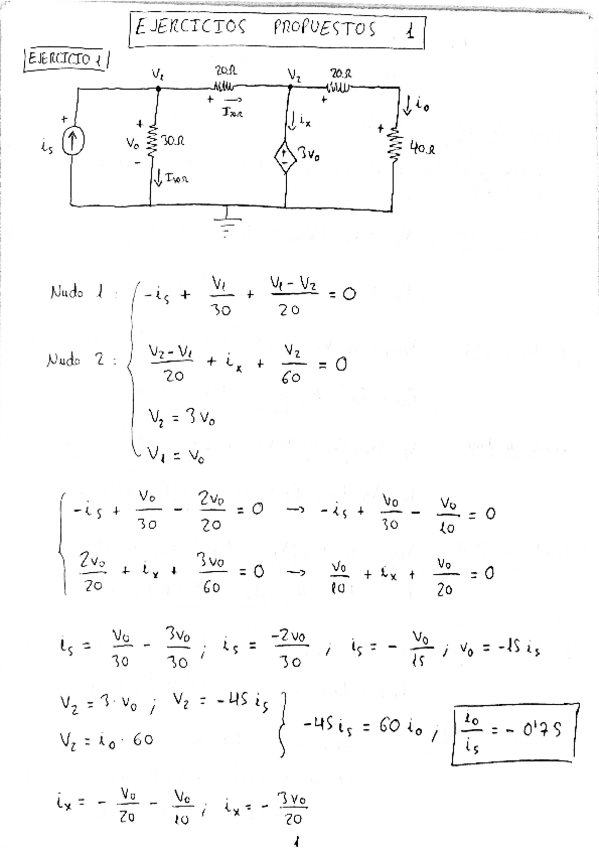 EJERCICIOS PROPUESTOS 1
EJERCICIO 1
V₁ 20Ω V₂ 20Ω
+ → + ↓ i₀
I₂₀Ω
+ + ↓ iₓ +
iₛ ↑ V₀ 30Ω 3V₀ 40Ω
- -
↓ I₃₀Ω
Nudo 1 : -iₛ + V₁/30 + (V₁-V₂)/20 = 0
Nudo 2 : (V₂-V₁)/20 + iₓ + V₂/60 = 0
V₂ = 3V₀
V₁ = V₀
-iₛ + V₀/30 - 2V₀/20 = 0 → -iₛ + V₀/30 - V₀/10 = 0
2V₀/20 + iₓ + 3V₀/60 = 0 → V₀/10 + iₓ + V₀/20 = 0
iₛ = V₀/30 - 3V₀/30 ; iₛ = -2V₀/30 ; iₛ = - V₀/15 ; V₀ = -15 iₛ
V₂ = 3·V₀ ; V₂ = -45 iₛ
V₂ = i₀ · 60
-45 iₛ = 60 i₀ ; i₀/iₛ = - 0'75
iₓ = - V₀/20 - V₀/10 ; iₓ = - 3V₀/20
1